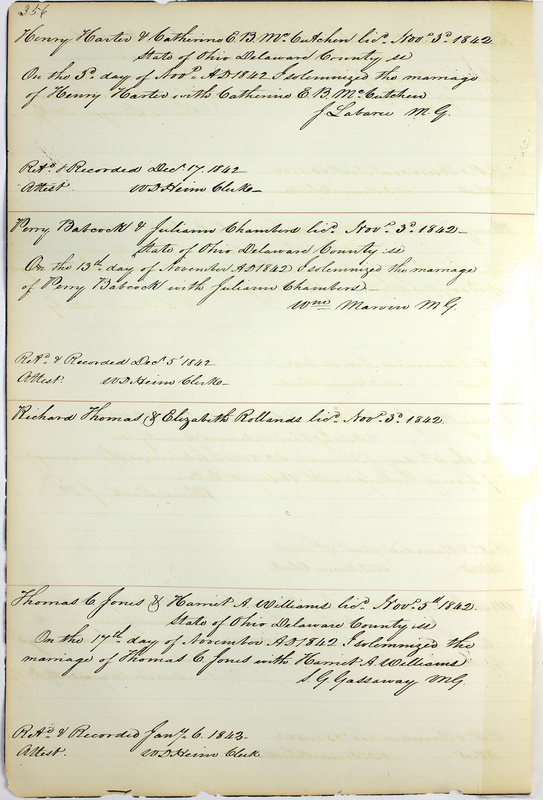 356
Henry Harter & Katherine E. B. McCutchen licd. Novr. 3d. 1842
State of Ohio Delaware County ss
On the 3d. day of Novr. AD 1842 I solemnized the marriage
of Henry Harter with Catherine E. B. McCutchen
J Labaree M. G.
Retd. & Recorded Decr. 7. 1842
Attest. W D Heim Clerk
Perry Babcock & Juliann Chambers licd. Novr. 3d. 1842
State of Ohio Delaware County ss
On the 13th day of November AD 1842 I solemnized the marriage
of Perry Babcock with Juliann Chambers
Wm Marvin M G.
Retd. & Recorded Decr. 5 1842
Attest. W D Heim Clerk
Richard Thomas & Elizabeth Rollands licd. Novr. 3d. 1842.
Thomas C Jones & Harriet A. Williams licd. Novr. 5th 1842.
State of Ohio Delaware County ss
On the 17th day of November AD 1842 I solemnized the
marriage of Thomas C Jones with Harriet A. Williams
S. G Gassaway MG.
Retd. & Recorded Jany. 6. 1843
Attest. W D Heim Clerk